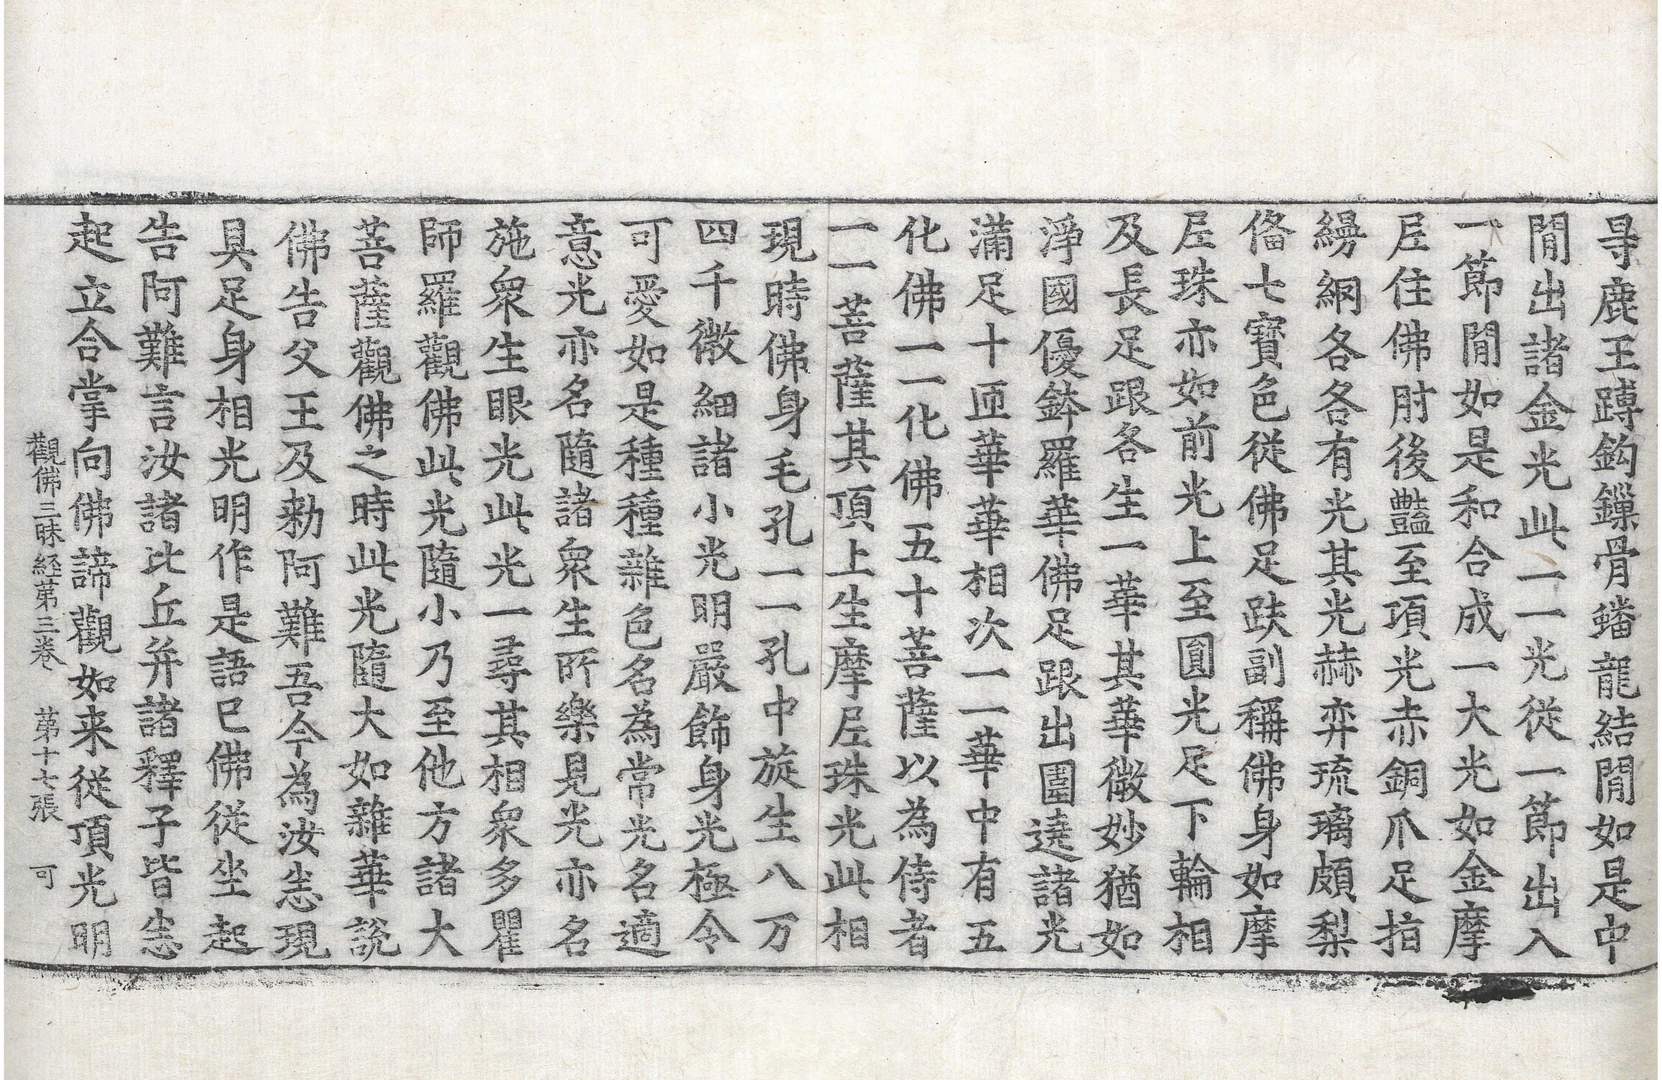 㝵鹿王蹲鈎鏁骨蟠龍結閒如是中
閒出諸金光此一一光從一節出入
一節閒如是和合成一大光如金摩
𡰱住佛肘後豔至項光赤銅爪足指
縵網各各有光其光赫弈琉璃頗梨
俻七寶色從佛足趺副稱佛身如摩
𡰱珠亦如前光上至圓光足下輪相
及長足跟各生一華其華微妙猶如
淨國優鉢羅華佛足跟出圍遶諸光
滿足十匝華華相次一一華中有五
化佛一一化佛五十菩薩以為侍者
一一菩薩其頂上生摩𡰱珠光此相
現時佛身毛孔一一孔中旋生八万
四千微細諸小光明嚴飾身光極令
可愛如是種種雜色名為常光名適
意光亦名隨諸衆生所樂見光亦名
施衆生眼光此光一尋其相衆多瞿
師羅觀佛此光隨小乃至他方諸大
菩薩觀佛之時此光隨大如雜華說
佛告父王及勑阿難吾今為汝悉現
具足身相光明作是語已佛從坐起
告阿難言汝諸比丘并諸釋子皆悉
起立合掌向佛諦觀如来從頂光明
觀佛三昧経苐三卷 苐十七張 可